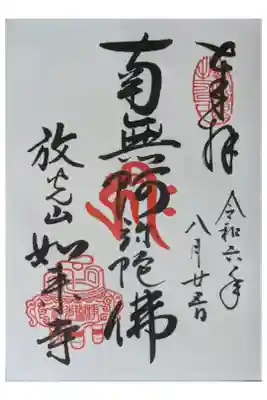 奉拝
令和六年
八月廿五日
南無阿弥陀佛
放光山
如来寺